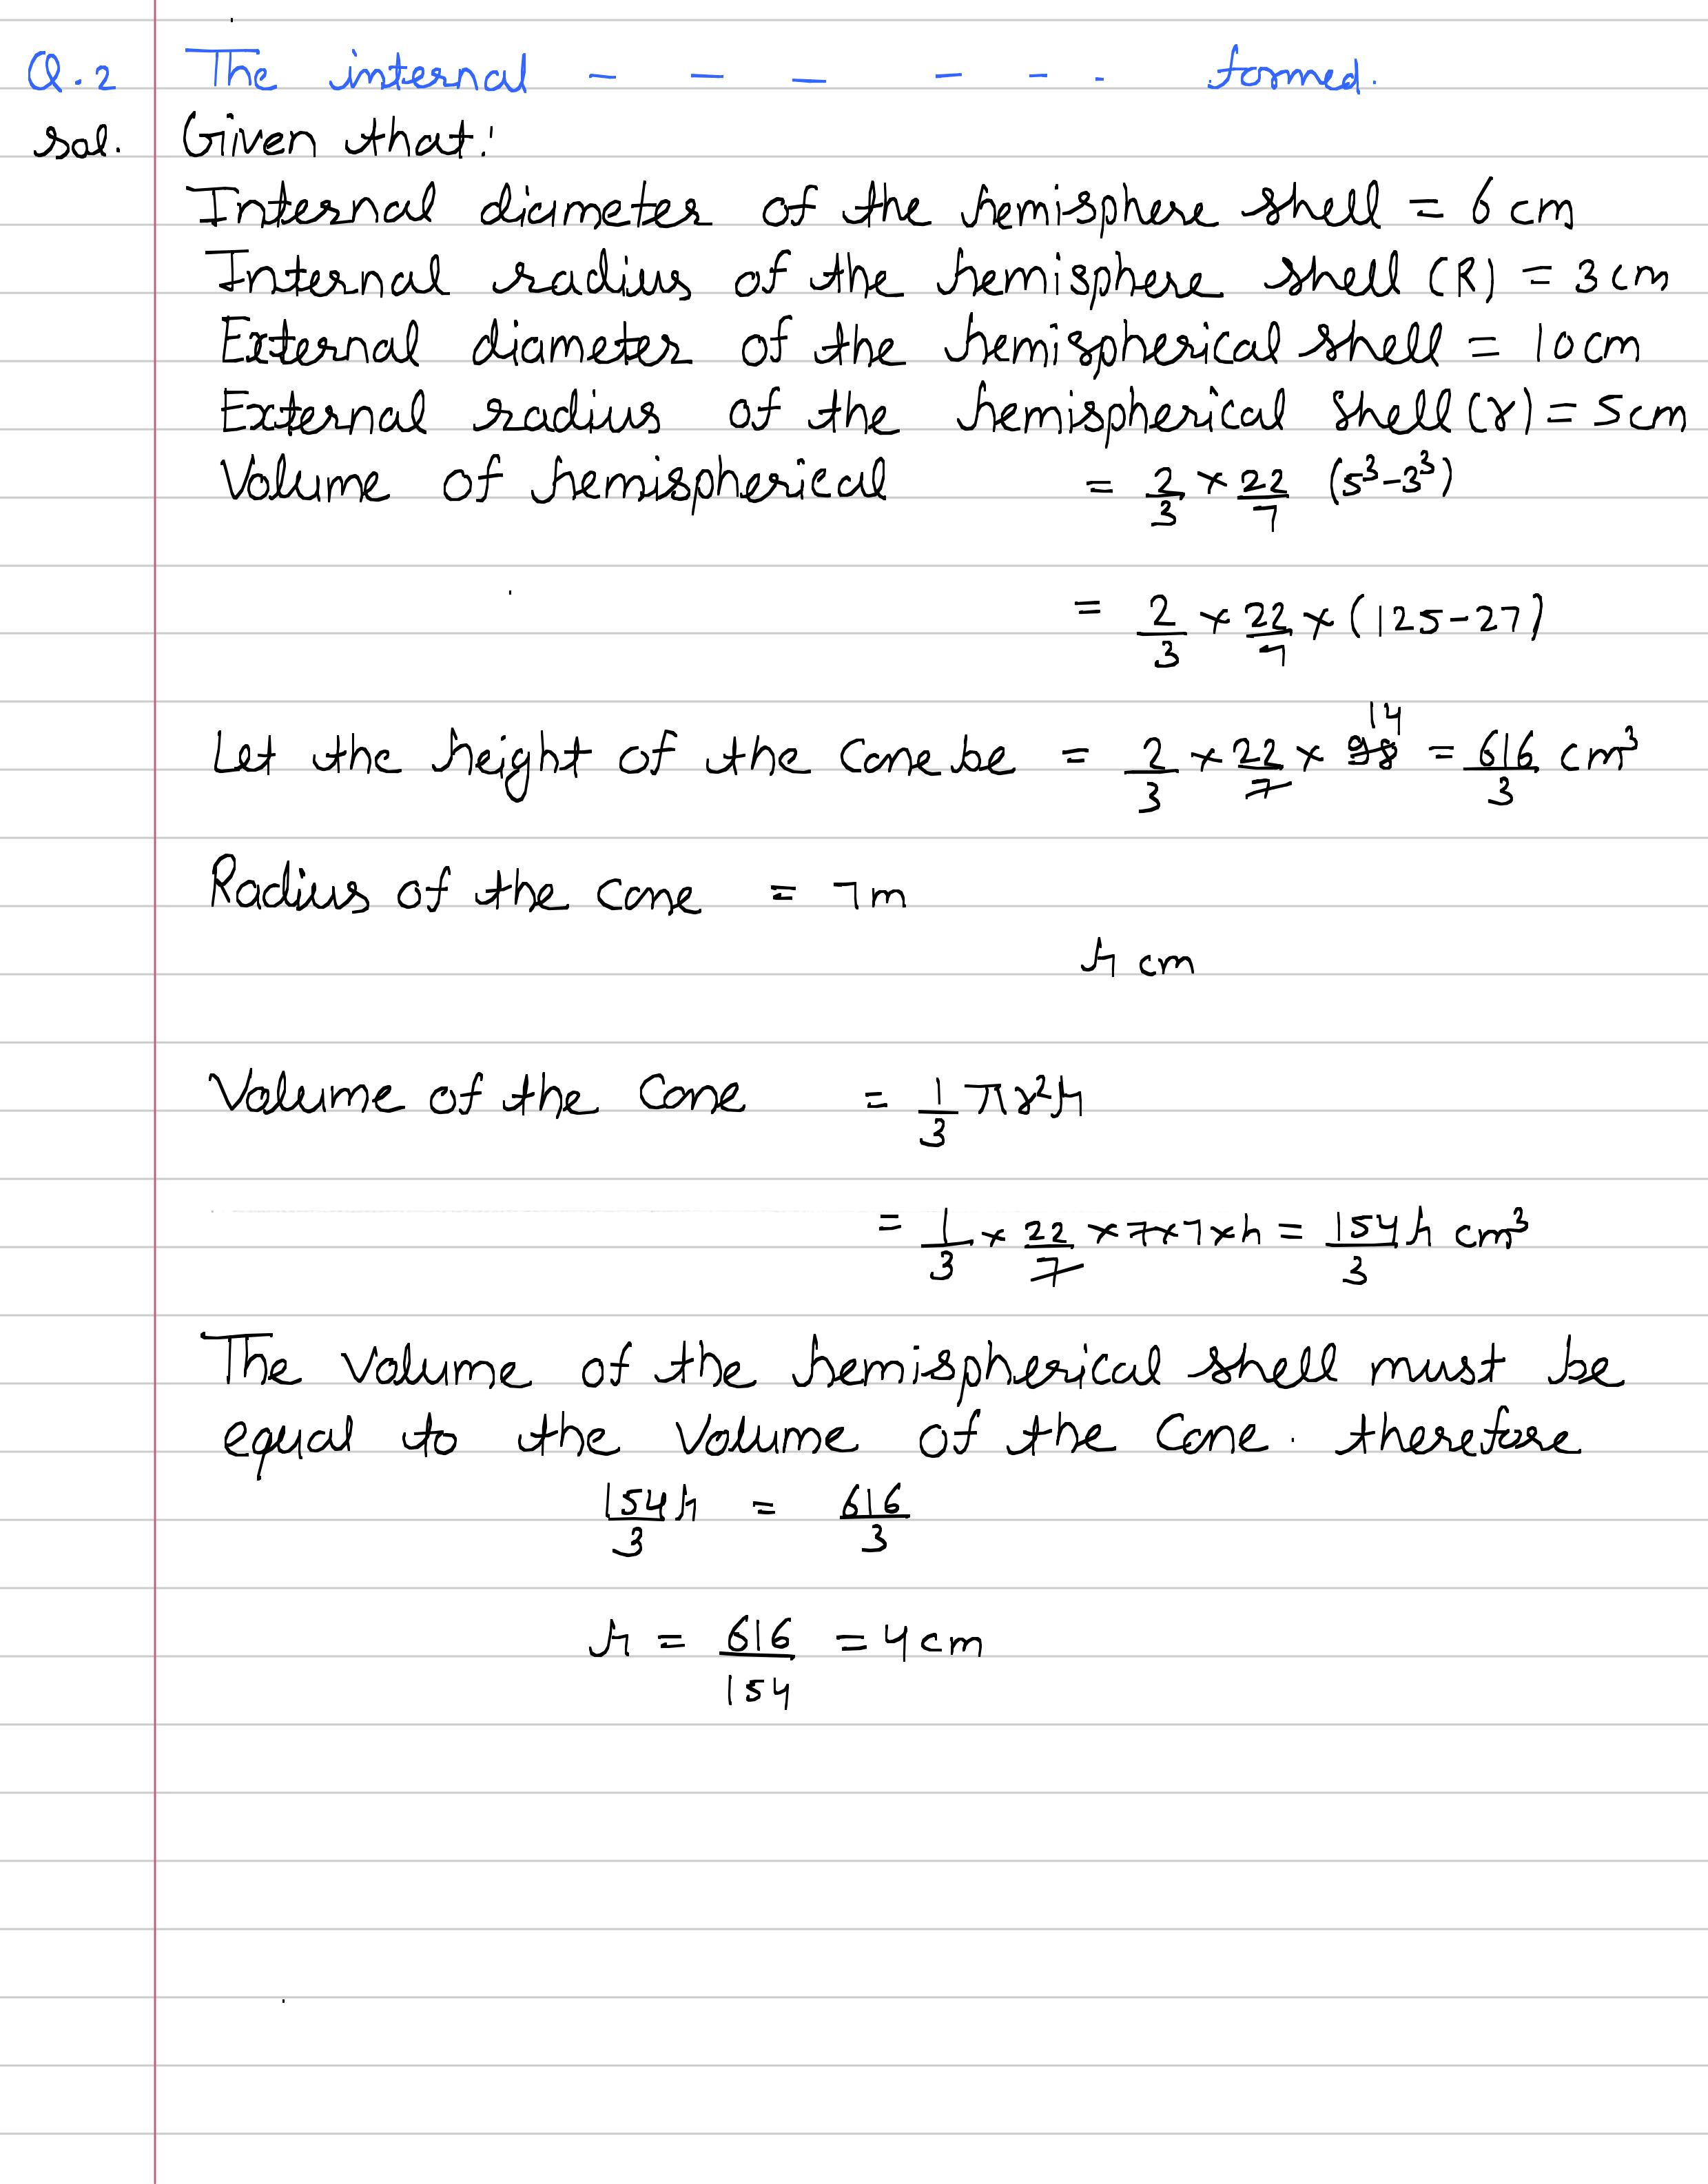 Q.2 The internal - - - - - - formed.
sol. Given that:
Internal diameter of the hemisphere shell = 6 cm
Internal radius of the hemisphere shell (R) = 3 cm
External diameter of the hemispherical shell = 10 cm
External radius of the hemispherical shell (r) = 5 cm
Volume of hemispherical = 2/3 × 22/7 (5³-3³)
= 2/3 × 22/7 × (125-27)
14
Let the height of the cone be = 2/3 × 22/7 × 98 = 616/3 cm³
Radius of the cone = 7m
h cm
Volume of the cone = 1/3 πr²h
= 1/3 × 22/7 × 7×7×h = 154/3 h cm³
The volume of the hemispherical shell must be
equal to the volume of the cone. therefore
154/3 h = 616/3
h = 616/154 = 4 cm